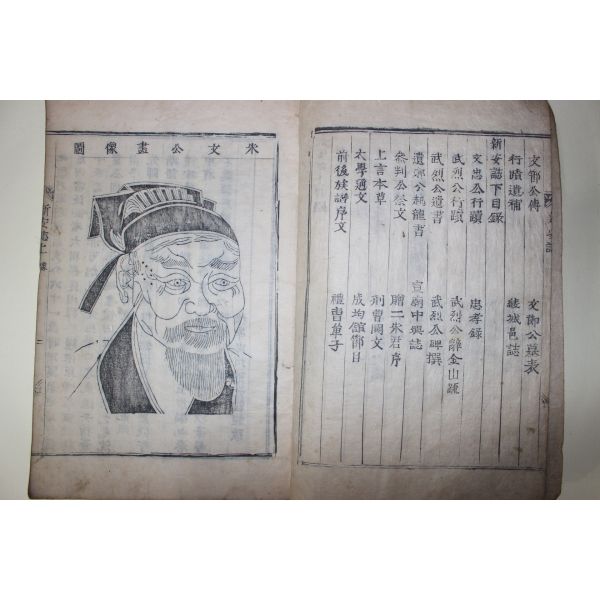 文節公傳 文節公墓表
行蹟遺補 綾城邑誌
新安誌下目錄
文忠公行蹟 忠孝錄
武烈公行蹟 武烈公離金山疏
武烈公遺書 武烈公碑撰
遺鄭公 龍書 宣廟中興誌
參判公祭文 贈二朱君序
上言本草 刑曹關文
太學通文 成均館 日
前後族譜序文 禮曹單子
朱文公畫像圖
新安誌上